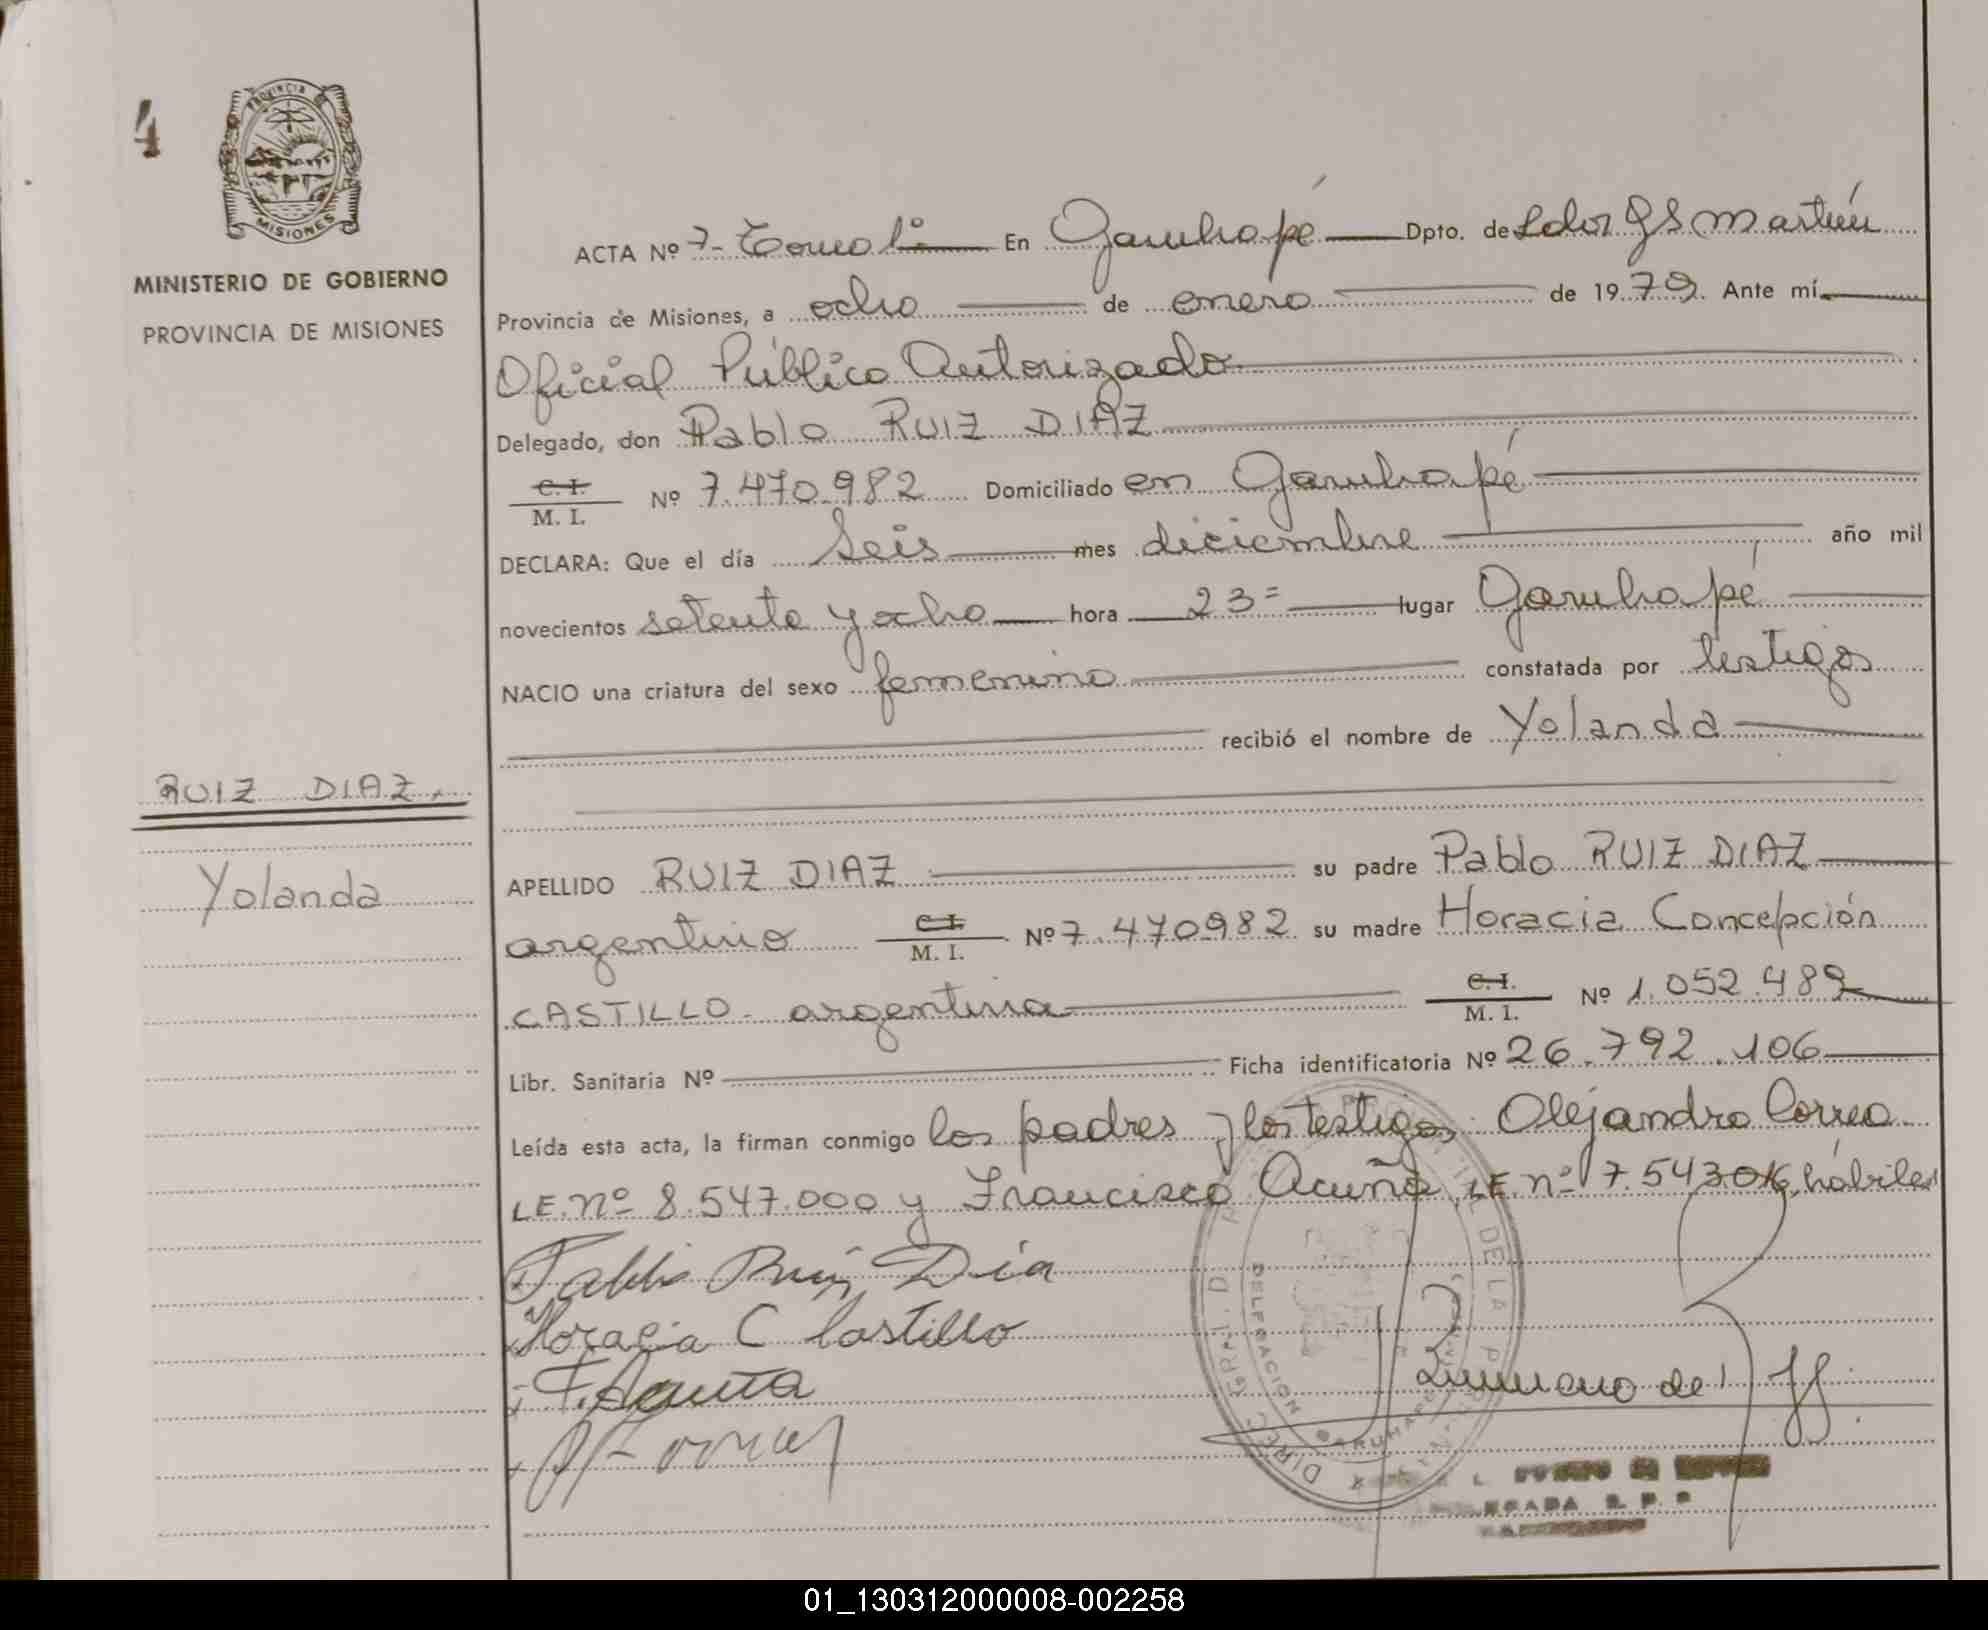 4
PROVINCIA DE
MISIONES
MINISTERIO DE GOBIERNO
PROVINCIA DE MISIONES
ACTA Nº 7- Tomo 1º En Garuhapé Dpto. de Ldor G S Martín
Provincia de Misiones, a ocho de enero de 1979. Ante mí
Oficial Público Autorizado
Delegado, don Pablo RUIZ DIAZ
C. I.
M. I. Nº 7.470.982 Domiciliado en Garuhapé
DECLARA: Que el día Seis mes diciembre año mil
novecientos setenta y ocho hora 23= lugar Garuhapé
NACIO una criatura del sexo femenino constatada por testigos
recibió el nombre de Yolanda
RUIZ DIAZ.
Yolanda
APELLIDO RUIZ DIAZ su padre Pablo RUIZ DIAZ
argentino C. I. M. I. Nº 7.470982 su madre Horacia Concepción
CASTILLO - argentina C. I. M. I. Nº 1.052.489
Libr. Sanitaria Nº Ficha identificatoria Nº 26.792.106
Leída esta acta, la firman conmigo los padres y los testigos Alejandro Correa
LE. nº 8.547.000 y Francisco Acuña, LE. nº 7.543016, hábiles
Pablo Ruiz Dia
Horacia C Castillo
F. Acuña
DELEGACION
GARUHAPE
DE LA
DIREC
DELEGADA R. P. P.
01_130312000008-002258